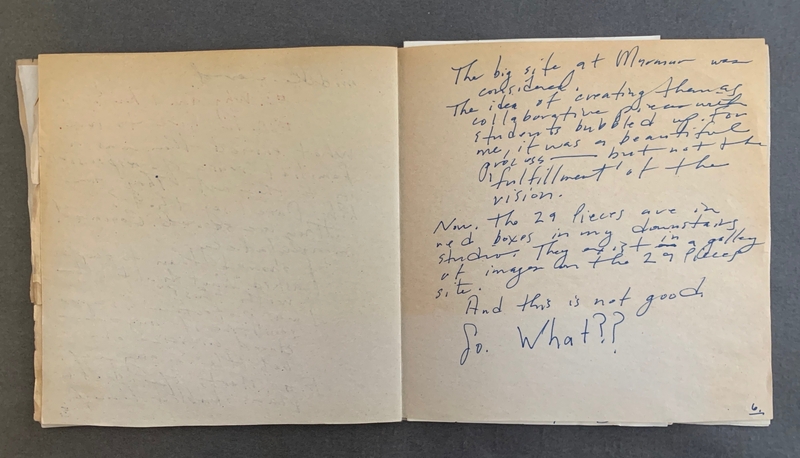 The big site at Myrmur was
considered.
The idea of creating them as
collaborative pieces with
students bubbled up for
me, it was a beautiful
process — but not the
fulfillment of the
vision.
Now. The 29 Pieces are in
red boxes in my downstairs
studio. They exist in a galley
of images on the 29 Pieces
site.
And this is not good
So. What??
6.